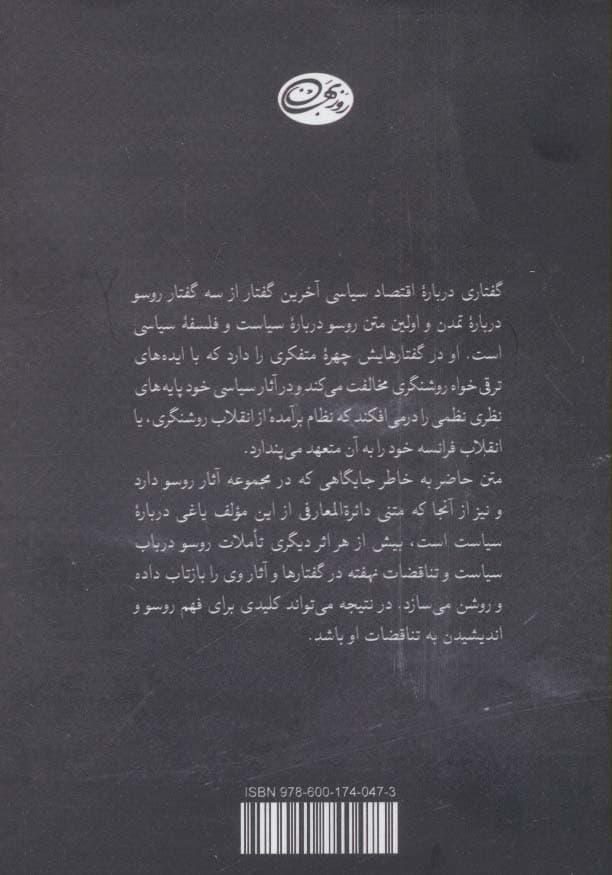 روزبهان
گفتاری دربارهٔ اقتصاد سیاسی آخرین گفتار از سه گفتار روسو
دربارهٔ تمدن و اولین متن روسو دربارهٔ سیاست و فلسفهٔ سیاسی
است. او در گفتارهایش چهرهٔ متفکری را دارد که با ایده‌های
ترقی‌خواه روشنگری مخالفت می‌کند و در آثار سیاسی خود پایه‌های
نظری نظمی را درمی‌افکند که نظام برآمدهٔ از انقلاب روشنگری، یا
انقلاب فرانسه خود را به آن متعهد می‌پندارد.
متن حاضر به خاطر جایگاهی که در مجموعه آثار روسو دارد
و نیز از آنجا که متنی دائرةالمعارفی از این مؤلف یاغی دربارهٔ
سیاست است، بیش از هر اثر دیگری تأملات روسو درباب
سیاست و تناقضات نهفته در گفتارها و آثار وی را بازتاب داده
و روشن می‌سازد. در نتیجه می‌تواند کلیدی برای فهم روسو و
اندیشیدن به تناقضات او باشد.
ISBN 978-600-174-047-3